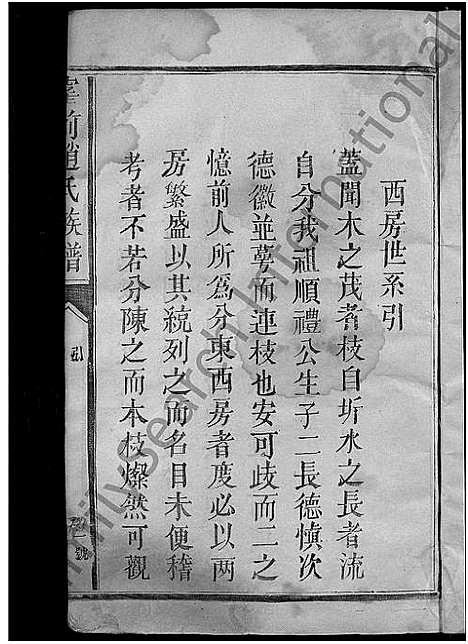 西房世系引
蓋聞木之茂者枝自圻水之長者流
自分我祖順禮公生子二長德愼次
德徽並萼而連枝也安可歧而二之
憶前人所爲分東西房者度必以两
房繁盛以其統列之而名目未便稽
考者不若分陳之而本枝燦然可觀
前趙氏族譜
引
一號
FamilySearch International